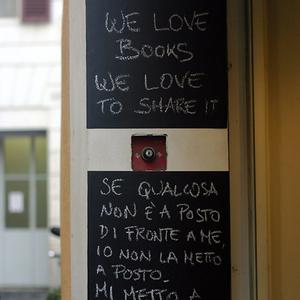 WE LOVE
BOOKS
WE LOVE
TO SHARE IT
SE QUALCOSA
NON È A POSTO
DI FRONTE A ME,
IO NON LA METTO
A POSTO_
MI METTO A